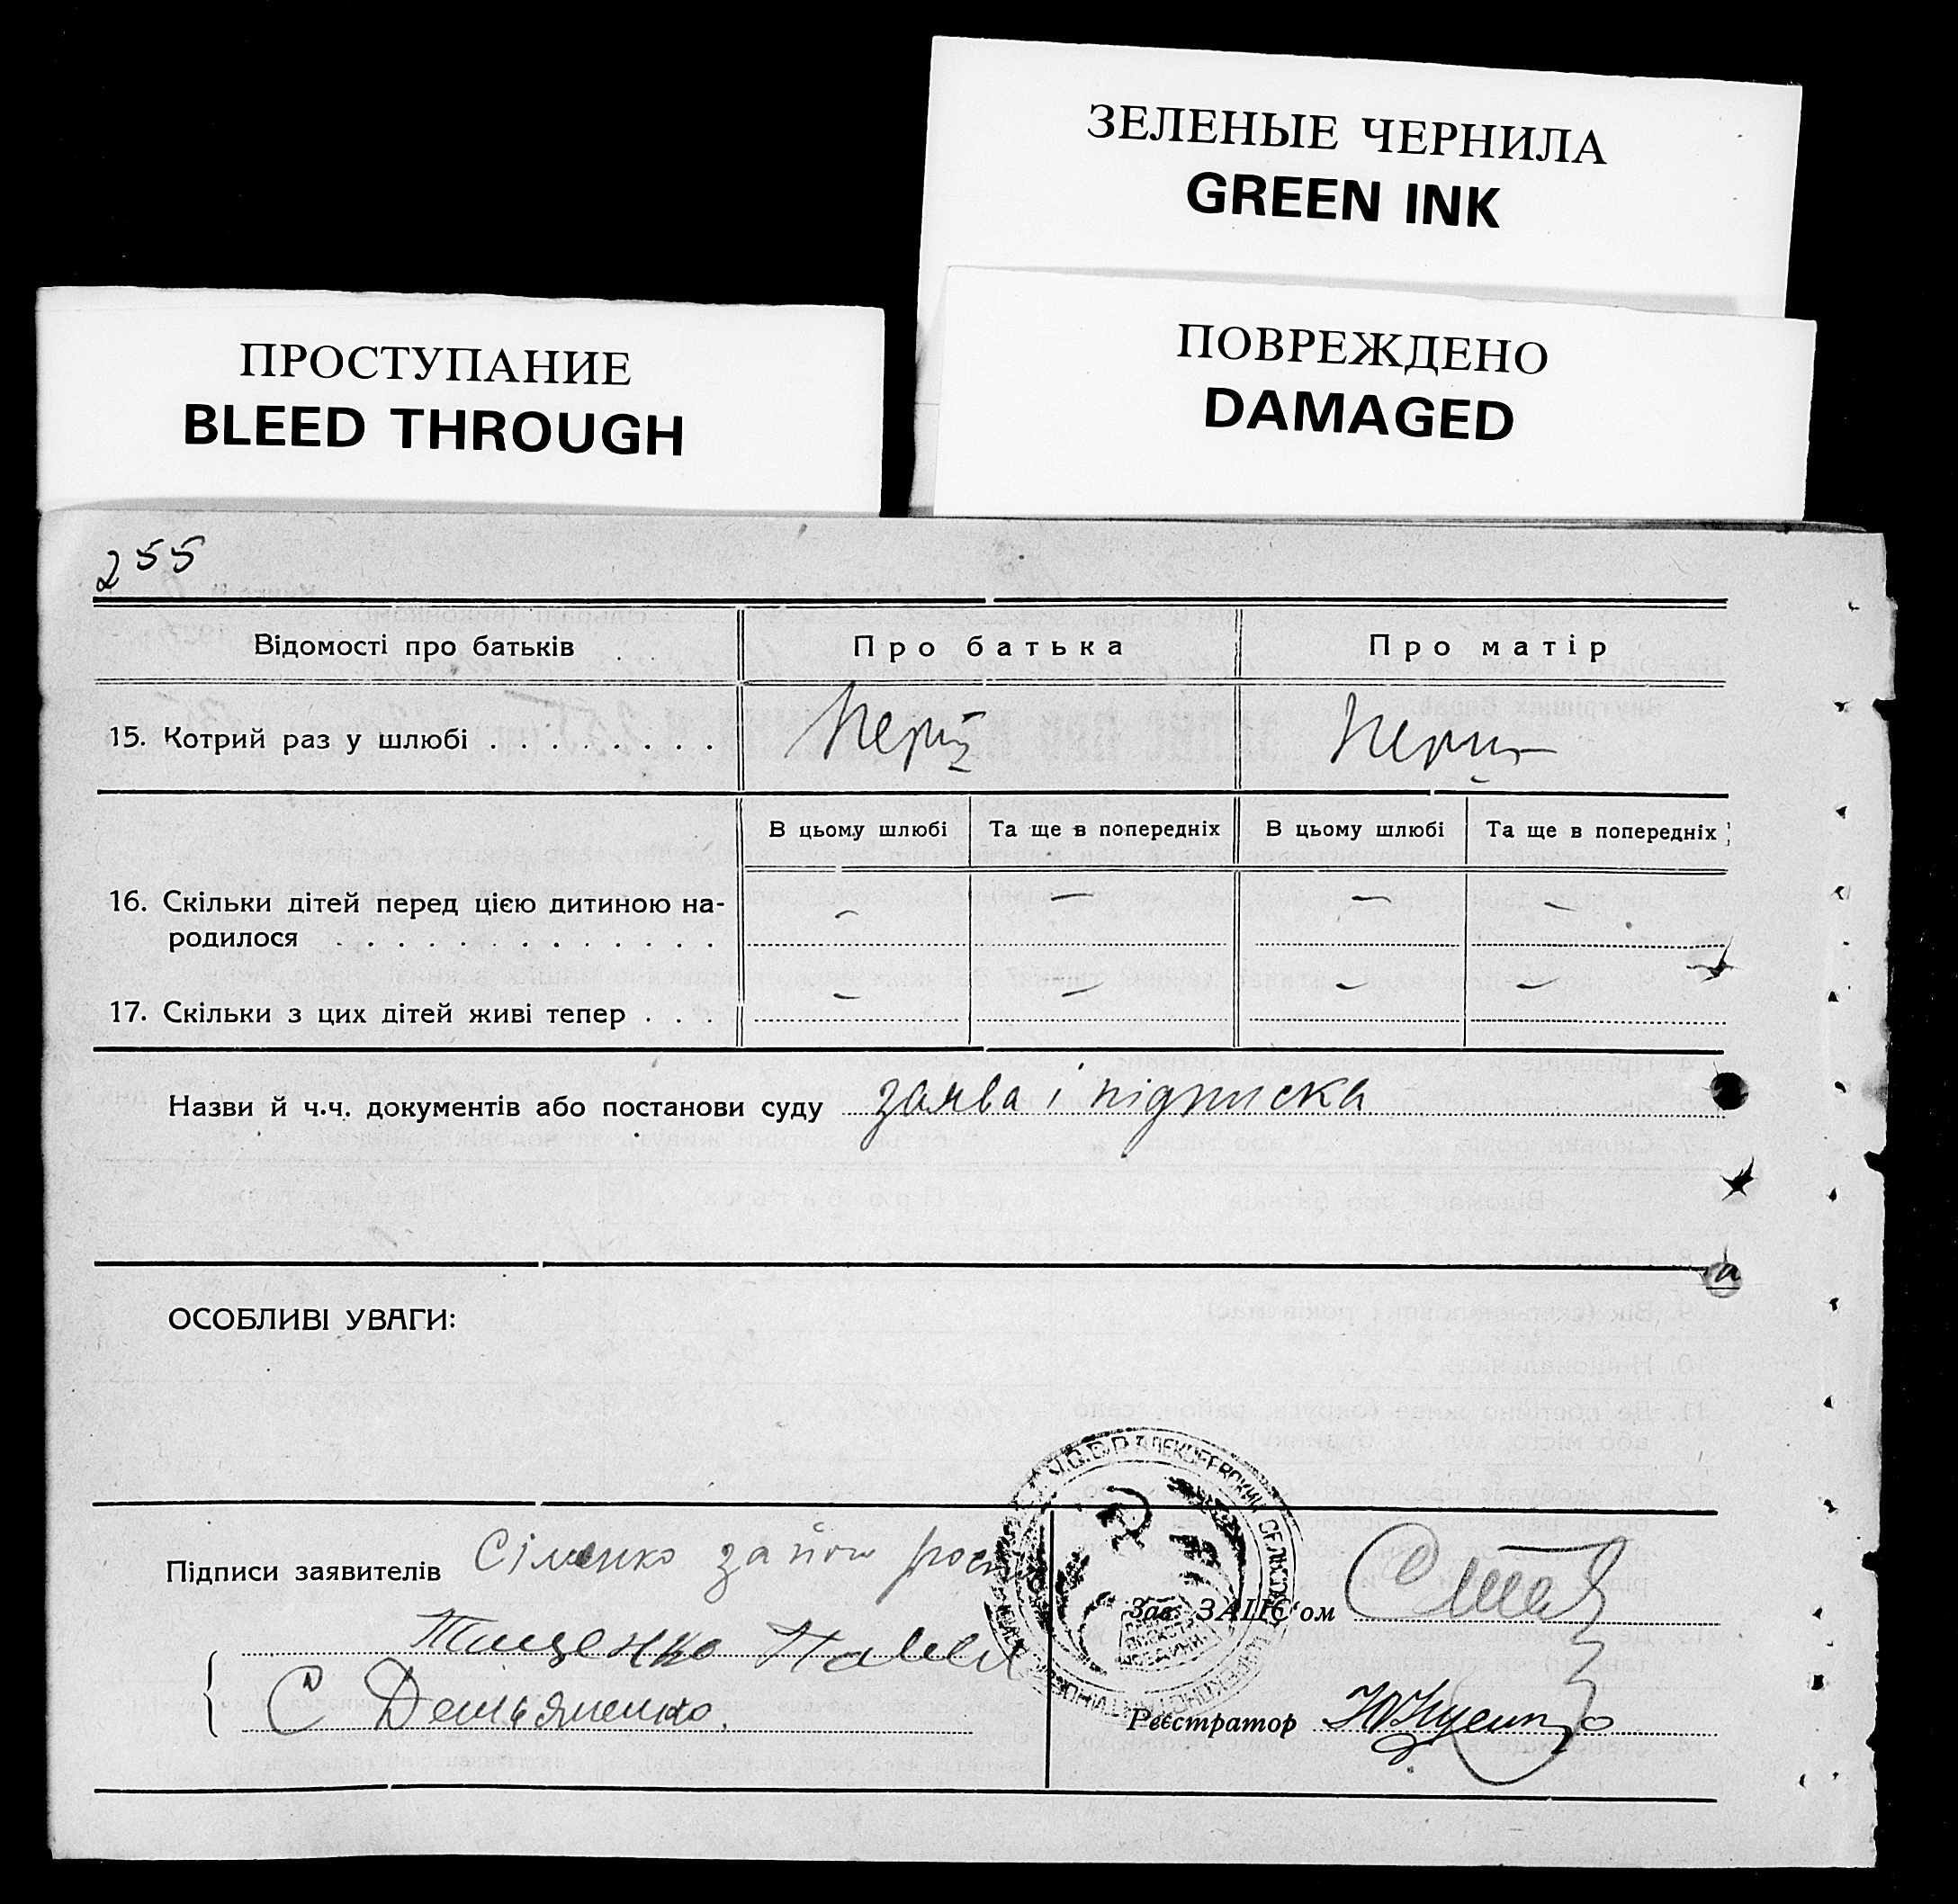 ЗЕЛЕНЫЕ ЧЕРНИЛА
GREEN INK
ПОВРЕЖДЕНО
DAMAGED
ПРОСТУПАНИЕ
BLEED THROUGH
255
Відомості про батьків
Про батька
Про матір
15. Котрий раз у шлюбі
В цьому шлюбі
Та ще в попередніх
В цьому шлюбі
Та ще в попередніх
16. Скільки дітей перед цією дитиною на-
родилося
– – – –
17. Скільки з цих дітей живі тепер
– – – –
Назви й ч.ч. документів або постанови суду заява і підписка
ОСОБЛИВІ УВАГИ:
Підписи заявителів Сіменко за його
Зав. ЗАГС'ом
Тищенко
С Демьяненко.
Реєстратор